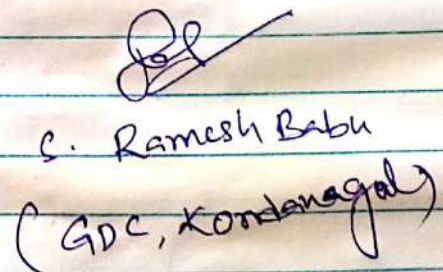 S. Ramesh Babu
(GDC, Kondanagal)